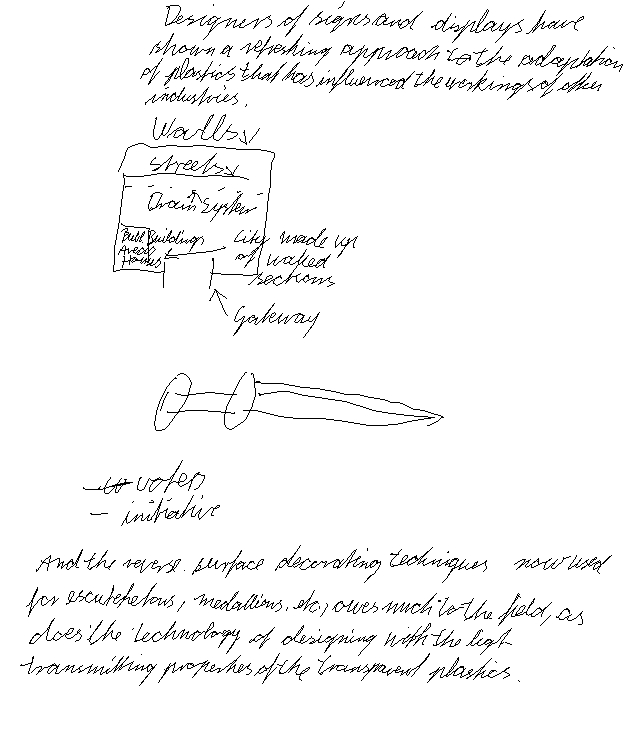 Designers of signs and displays have
shown a refreshing approach to the adaptation
of plastics that has influenced the workings of other
industries.
Walls
Streets
Drain System
Buildings
Areas
Houses
City made up
of walled
sections
Gateway
voters
- initiative
And the reverse surface decorating techniques now used
for escutcheons, medallions, etc., owes much to the field, as
does the technology of designing with the light
transmitting properties of the transparent plastics.